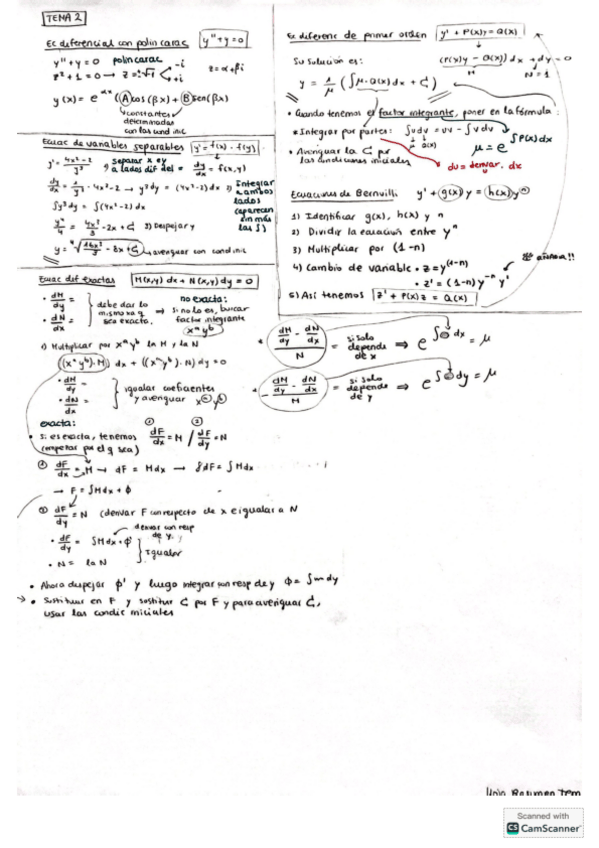 TEMA 2
Ec diferencial con polin carac y'' + y = 0
y'' + y = 0 polin carac
z² + 1 = 0 → z = √-1 -i +i z = α + βi
y(x) = e^αx (A cos(βx) + B sen(βx)
constantes
determinadas
con las cond inic
Ecuac de variables separables y' = f(x) · f(y)
y' = 4x²-2 / y³ separar x e y a lados dif del = dy/dx = f(x,y)
dy/dx = 1/y³ · 4x²-2 → y³dy = (4x²-2) dx 2) Integrar ambos lados
∫y³dy = ∫(4x²-2) dx (aparecen sin más las ∫)
y⁴/4 = 4x³/3 - 2x + C 3) Despejar y
averiguar con cond inic
Ecuac dif exactas M(x,y) dx + N(x,y) dy = 0
• dM/dy =
• dN/dx =
debe dar lo mismo xa q sea exacto.
no exacta:
si no lo es, buscar factor integrante
x^a y^b
1) Multiplicar por x^a y^b la M y la N
((x^a y^b)·M) dx + ((x^a y^b)·N) dy = 0
• dM/dy =
• dN/dx =
igualar coeficientes y averiguar x^a y^b
exacta:
• Si es exacta, tenemos ① dF/dx = M / ② dF/dy = N
(empezar por el q sea)
① dF/dx = M → dF = M dx → ∫dF = ∫M dx
→ F = ∫M dx + ϕ
② dF/dy = N (derivar F con respecto de x e igualar a N
derivar con resp de y.
• dF/dy = ∫M dx + ϕ'
• N = la N
Igualar
• Ahora despejar ϕ' y luego integrar con resp de y ϕ = ∫ dy
→ • Sustituir en F y sustituir C por F y para averiguar C,
usar las condic iniciales
Ec diferenc de primer orden y' + P(x)y = Q(x)
Su solución es: (P(x)y - Q(x)) dx + dy = 0
M N=1
y = 1/μ (∫μ·Q(x) dx + C)
• Cuando tenemos el factor integrante, poner en la fórmula:
* Integrar por partes: ∫u dv = uv - ∫v du μ = e^∫P(x)dx
μ Q(x)
• Averiguar la C por las condiciones iniciales
du = derivar . dx
Ecuaciones de Bernvilli y' + g(x) y = h(x) y^n
1) Identificar g(x), h(x) y n
2) Dividir la ecuación entre y^n
3) Multiplicar por (1-n)
4) Cambio de variable • z = y^(1-n)
• z' = (1-n) y^-n y'
añadir!!
5) Así tenemos z' + P(x) z = Q(x)
• (dM/dy - dN/dx) / N = si solo depende de x ⇒ e^∫ dx = μ
• - (dM/dy - dN/dx) / M = si solo depende de y ⇒ e^∫ dy = μ
Resumen Tem
Scanned with
CS CamScanner